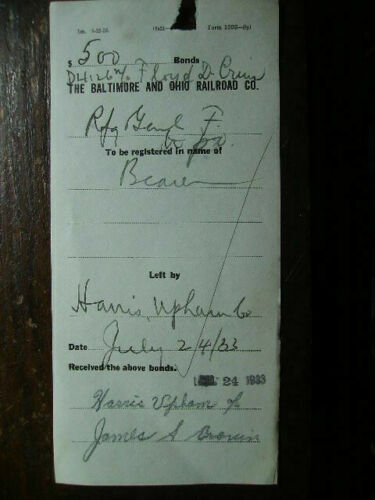 Form
$ 500 Bonds
Floyd D.
THE BALTIMORE AND OHIO RAILROAD CO.
Rfg Genl F
To be registered in name of
Bearer
Left by
Harris, Upham & Co
Date July 24/33
Received the above bonds.
24 1933
Harris Upham
James S